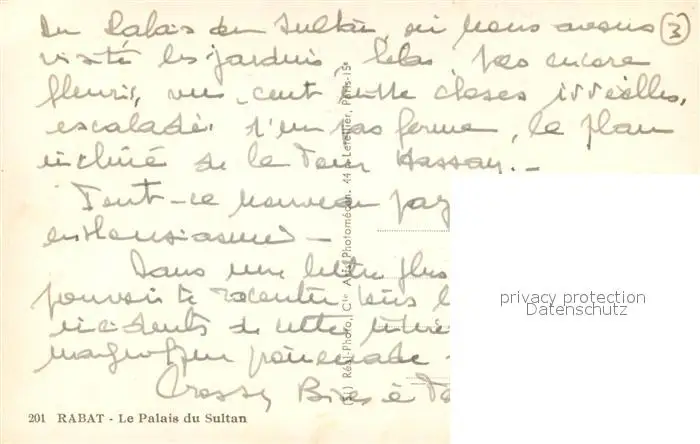 Du Palais du Sultan, où nous avons ③
visité les jardins, hélas pas encore
fleuris, vu cent mille choses
escaladé d'un pas ferme, le plan
incliné de la Tour Hassan. -
Tout ce nouveau pay
enthousiasmé -
Dans une lettre plus
pouvoir te raconter tous l
incidents de cette
magnifique promenade
Bises à
201 RABAT - Le Palais du Sultan
Réal-Photo, Cie Arts Photomécan. 44 r. Letellier, Paris-15e
privacy protection
Datenschutz